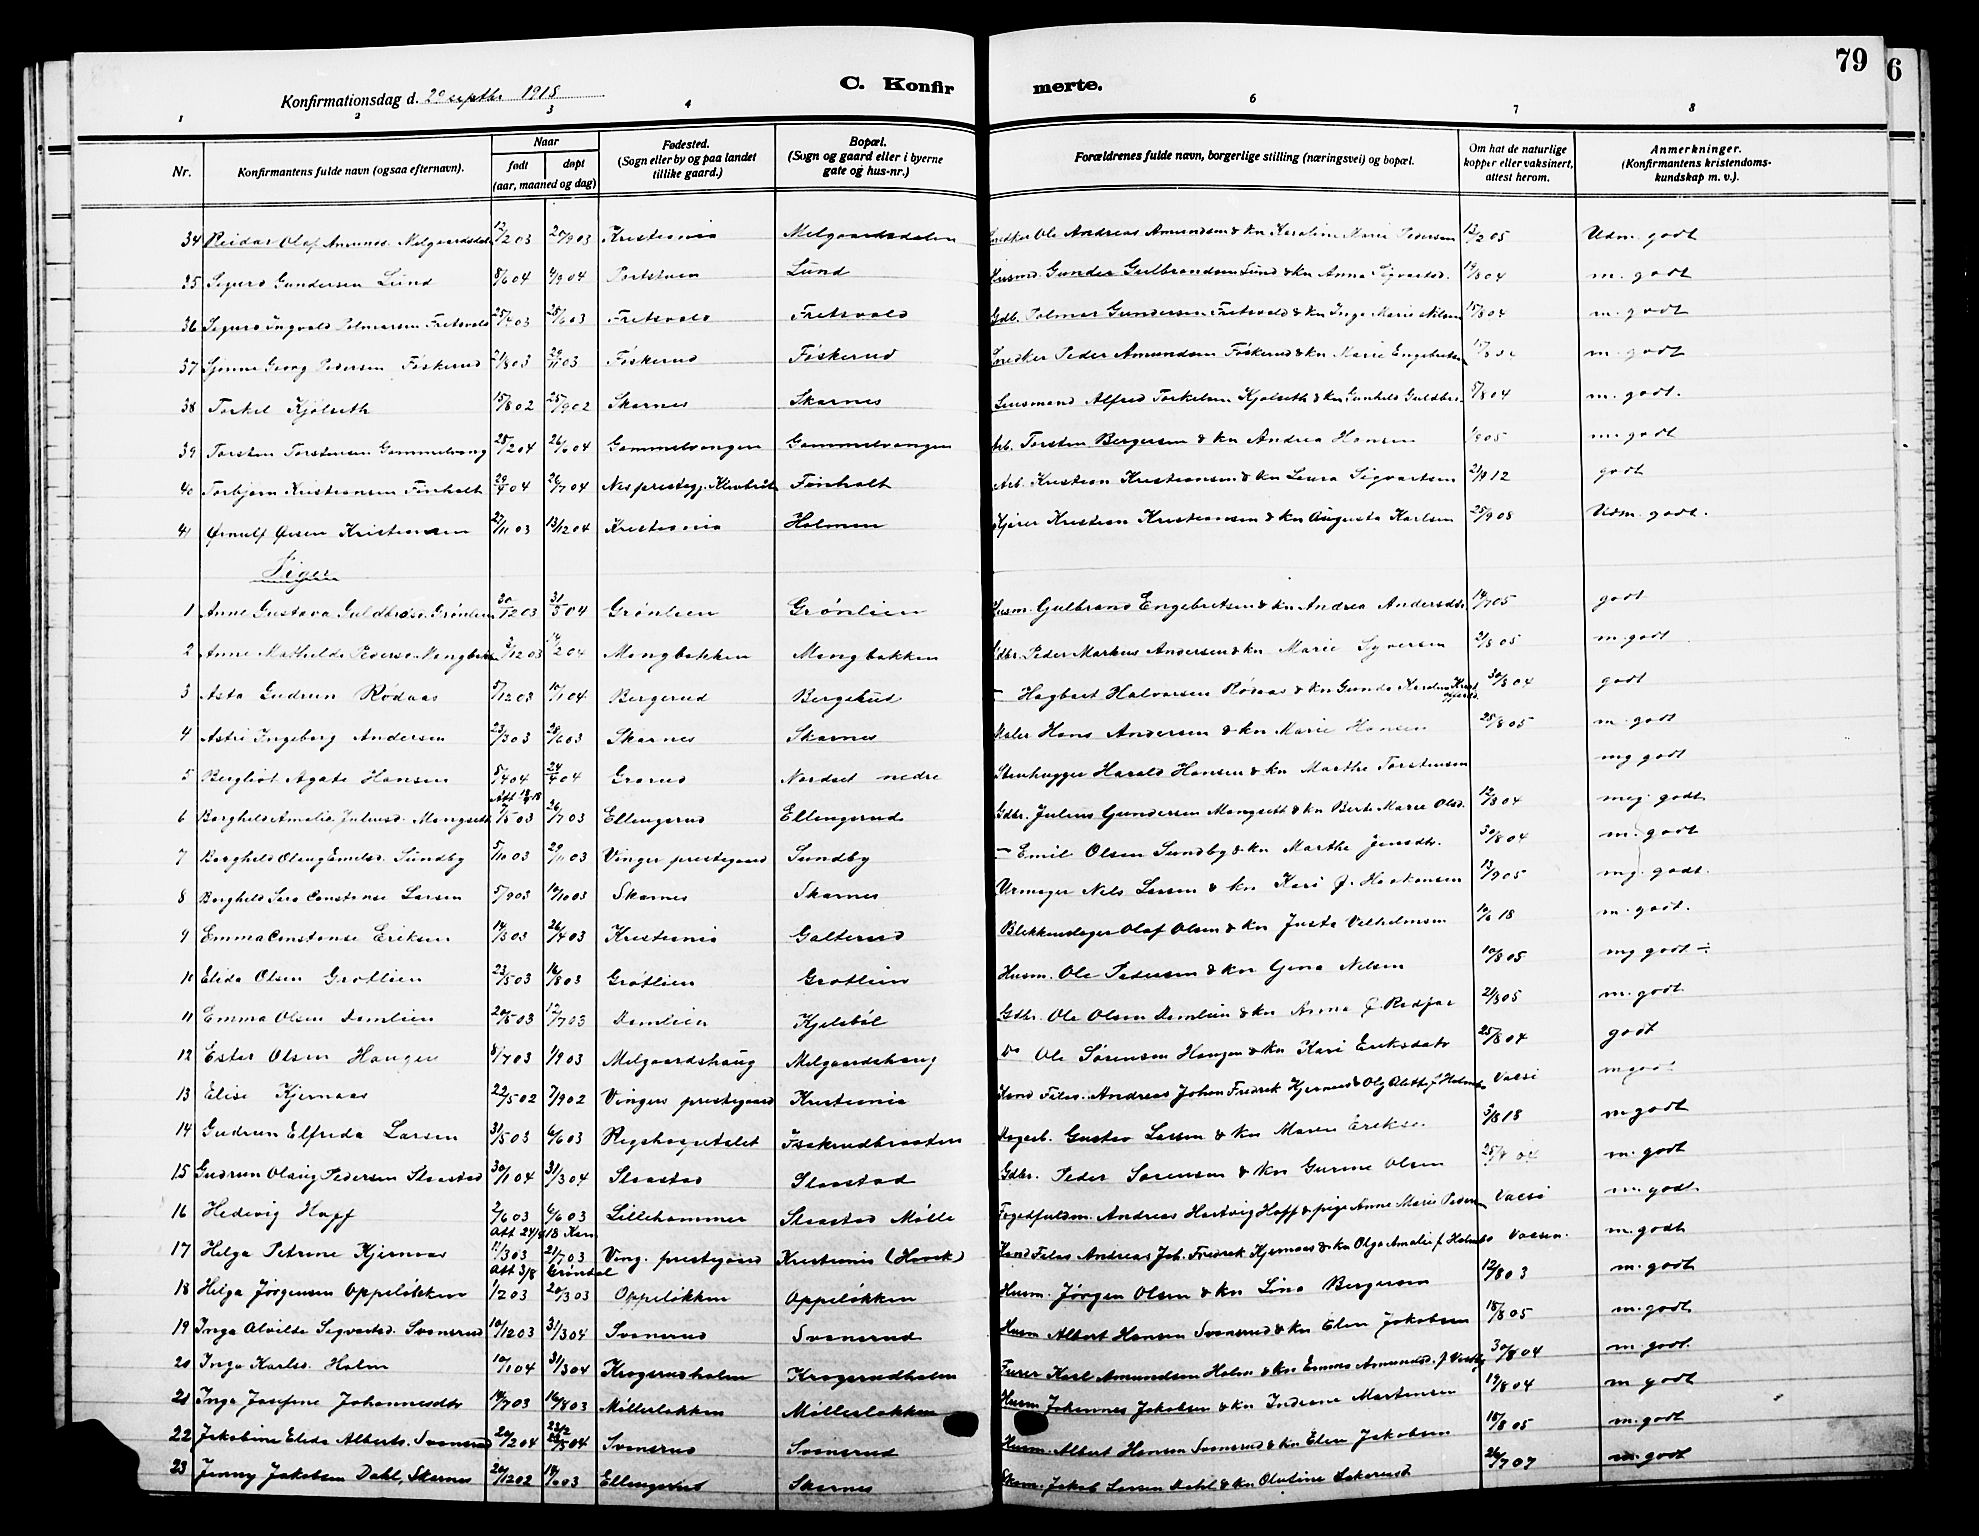 79
6
C. Konfir merte.
Konfirmationsdag d. 20 septbr 1918
1 2 3 4 6 7 8
Nr. Konfirmantens fulde navn (ogsaa efternavn). Naar født døpt (aar, maaned og dag) Fødested. (Sogn eller by og paa landet tillike gaard.) Bopæl. (Sogn og gaard eller i byerne gate og hus-nr.) Forældrenes fulde navn, borgerlige stilling (næringsvei) og bopæl. Om hat de naturlige kopper eller vaksinert, attest herom. Anmerkninger. (Konfirmantens kristendoms-kundskap m. v.).
34 Reidar Olaf Amunds. Melgaardsdalen 12/2 03 20/9 03 Kristiania Melgaardsdalen Snedker Ole Andreas Amundsen & kn Karoline Marie Pedersen 13/2 05 Udm. godt
35 Sigurd Gundersen Lund 8/6 04 4/9 04 Portstuen Lund Husmd. Gunder Gulbrandsen Lund & kn Anna Sigvartsd. 19/8 04 m. godt
36 Sigurd Ingvald Polmarsen Fretsvold 25/4 03 28/6 03 Fretsvold Fretsvold Gdb. Polmar Gundersen Fretsvold & kn Inga Marie Nilsen 15/8 04 m. godt
37 Georg Pedersen Føskerud 21/8 03 29/11 03 Føskerud Føskerud Snedker Peder Amundsen Føskerud & kn Marie Engebretsen m. godt
38 Torkel Kjølseth 15/8 02 25/9 02 Skarnes Skarnes Lensmand Alfred Torkelsen Kjølseth & kn Gunhild Guldbr. 5/8 04 m. godt.
39 Torsten Torstensen Gammelvang 25/2 04 26/6 04 Gammelvangen Gammelvangen Arb. Torsten Bergersen & kn Andrea Hansen 1/9 05 m. godt
40 Torbjørn Kristiansen Finholt 29/4 04 26/7 04 Nes prestegj. Finholt Arb. Kristian Kristiansen & kn Laura Sigvartsen 21/9 12 godt
41 Ørnulf Kristiansen 27/11 03 13/12 04 Kristiania Holmen Kjører Kristian Kristiansen & kn Augusta Karlsen 25/9 08 Udm. godt.
Piger
1 Anne Gustava Guldbrdsd. Grønlien 30/12 03 31/5 04 Grønlien Grønlien Husm. Gulbrand Engebretsen & kn Andrea Andersdtr 14/7 05 godt
2 Anne Mathilde Pedersd. Mangbakken 3/12 03 14/2 04 Mangbakken Mangbakken Gdbr. Peder Markus Andersen & kn Marie Syversen 21/8 05 m. godt
3 Asta Gudrun Rødaas 5/12 03 10/1 04 Bergerud Bergerud — Hagbart Halvorsen Rødaas & kn Gunda Karoline 30/8 04 godt
4 Astri Ingeborg Andersen 23/3 03 28/6 03 Skarnes Skarnes Maler Hans Andersen & kn Marie Hansen 25/8 05 m. godt
5 Bergliot Agate Hansen 5/4 04 24/4 04 Grorud Nordset nedre Stenhugger Harald Hansen & kn Marthe Torstensen mg godt
6 Borghild Amalie Juliusd. Mangseth 7/5 03 26/7 03 Ellengerud Ellengerud Gdbr. Julius Gundersen Mangseth & kn Berte Marie Olsd. 12/8 04 meg. godt
7 Borghild Olaug Emilsd. Sundby 5/10 03 29/11 03 Vinger prestegaard Sundby — Emil Olsen Sundby & kn Marthe Jensdtr. 30/8 04 m. godt
8 Borghild Sara Constanse Larsen 5/9 03 10/10 03 Skarnes Skarnes Urmager Nils Larsen & kn Kari J. Haakensen 13/9 05 mg. godt.
9 Emma Constanse Eriksen 14/3 03 26/4 03 Kristiania Galterud Blikkenslager Olaf Olsen & kn Justa Vilhelmsen 10/6 18 m. godt.
10 Elida Olsen Grøtlien 23/5 03 16/8 03 Grøtlien Grøtlien Husm. Ole Pedersen & kn Gina Nilsen 10/8 05 mg godt ÷
11 Emma Olsen Damlien 20/5 03 12/7 03 Damlien Kjølsbøl Gdbr. Ole Olsen Damlien & kn Anna 21/3 05 m. godt
12 Ester Olsen Haugen 8/7 03 1/9 03 Melgaardshaug Melgaardshaug Do Ole Sørensen Haugen & kn Kari Eriksdatr 25/8 04 godt
13 Elise Kjernaas 22/5 02 7/9 02 Vingers prestegaard Kristiania Kand Filos. Andreas Johan Fredrik Kjernaas & Vacsi m godt
14 Gudrun Elfrida Larsen 31/5 03 6/6 03 Isakrudbraaten Gustav Larsen & kn Maren Eriks. 3/8 18 m godt
15 Gudrun Olaug Pedersen Slaastad 30/1 04 31/3 04 Slaastad Slaastad Gdbr. Peder Sørensen & kn Gurine Olsen 25/8 04 m. godt
16 Hedevig Hoff 2/6 03 6/6 03 Lillehammer Slaastad Mølle Fogedfuldm. Andreas Hartvig Hoff & pige Anne Marie Peders Vacsi m. godt
17 Helga Petrine Kjernaas 11/3 03 21/7 03 Ving. prestegaard Kristiania Kand Filos Andreas Joh. Fredrik Kjernaas & kn Olga Amalie f. Holmbo Vacsin. m. godt
18 Helga Jørgensen Oppeløkken 1/2 03 20/3 03 Oppeløkken Oppeløkken Husm. Jørgen Olsen & kn Lina Bergersen 12/8 03 m. godt
19 Inga Alvilde Segvartsd. Svensrud 10/12 03 31/3 04 Svensrud Svensrud Husm Albert Hansen Svensrud & kn Elen Jakobsen 18/8 05 m. godt
20 Inga Karlsd. Holm 10/1 04 31/3 04 Krogsrudholm Krogsrudholm Karl Amundsen Holm & kn Emma Amundsd. 30/8 04 m. godt.
21 Inga Josefine Johannesdtr 14/7 03 16/8 03 Møllerløkken Møllerløkken Husm Johannes Jakobsen & kn Indiane Martinsen 19/8 04 m godt
22 Jakobine Elida Alberts. Svensrud 20/2 04 Svensrud Svensrud Husm. Albert Hansen Svensrud & kn Elen Jakobsen 18/8 05 m. godt
23 Jenny Jakobsen Dahl, Skarnes 20/12 02 14/6 03 Ellengerud Skarnes Skom. Jakob Larsen Dahl & kn Olutine 26/7 07 m. godt